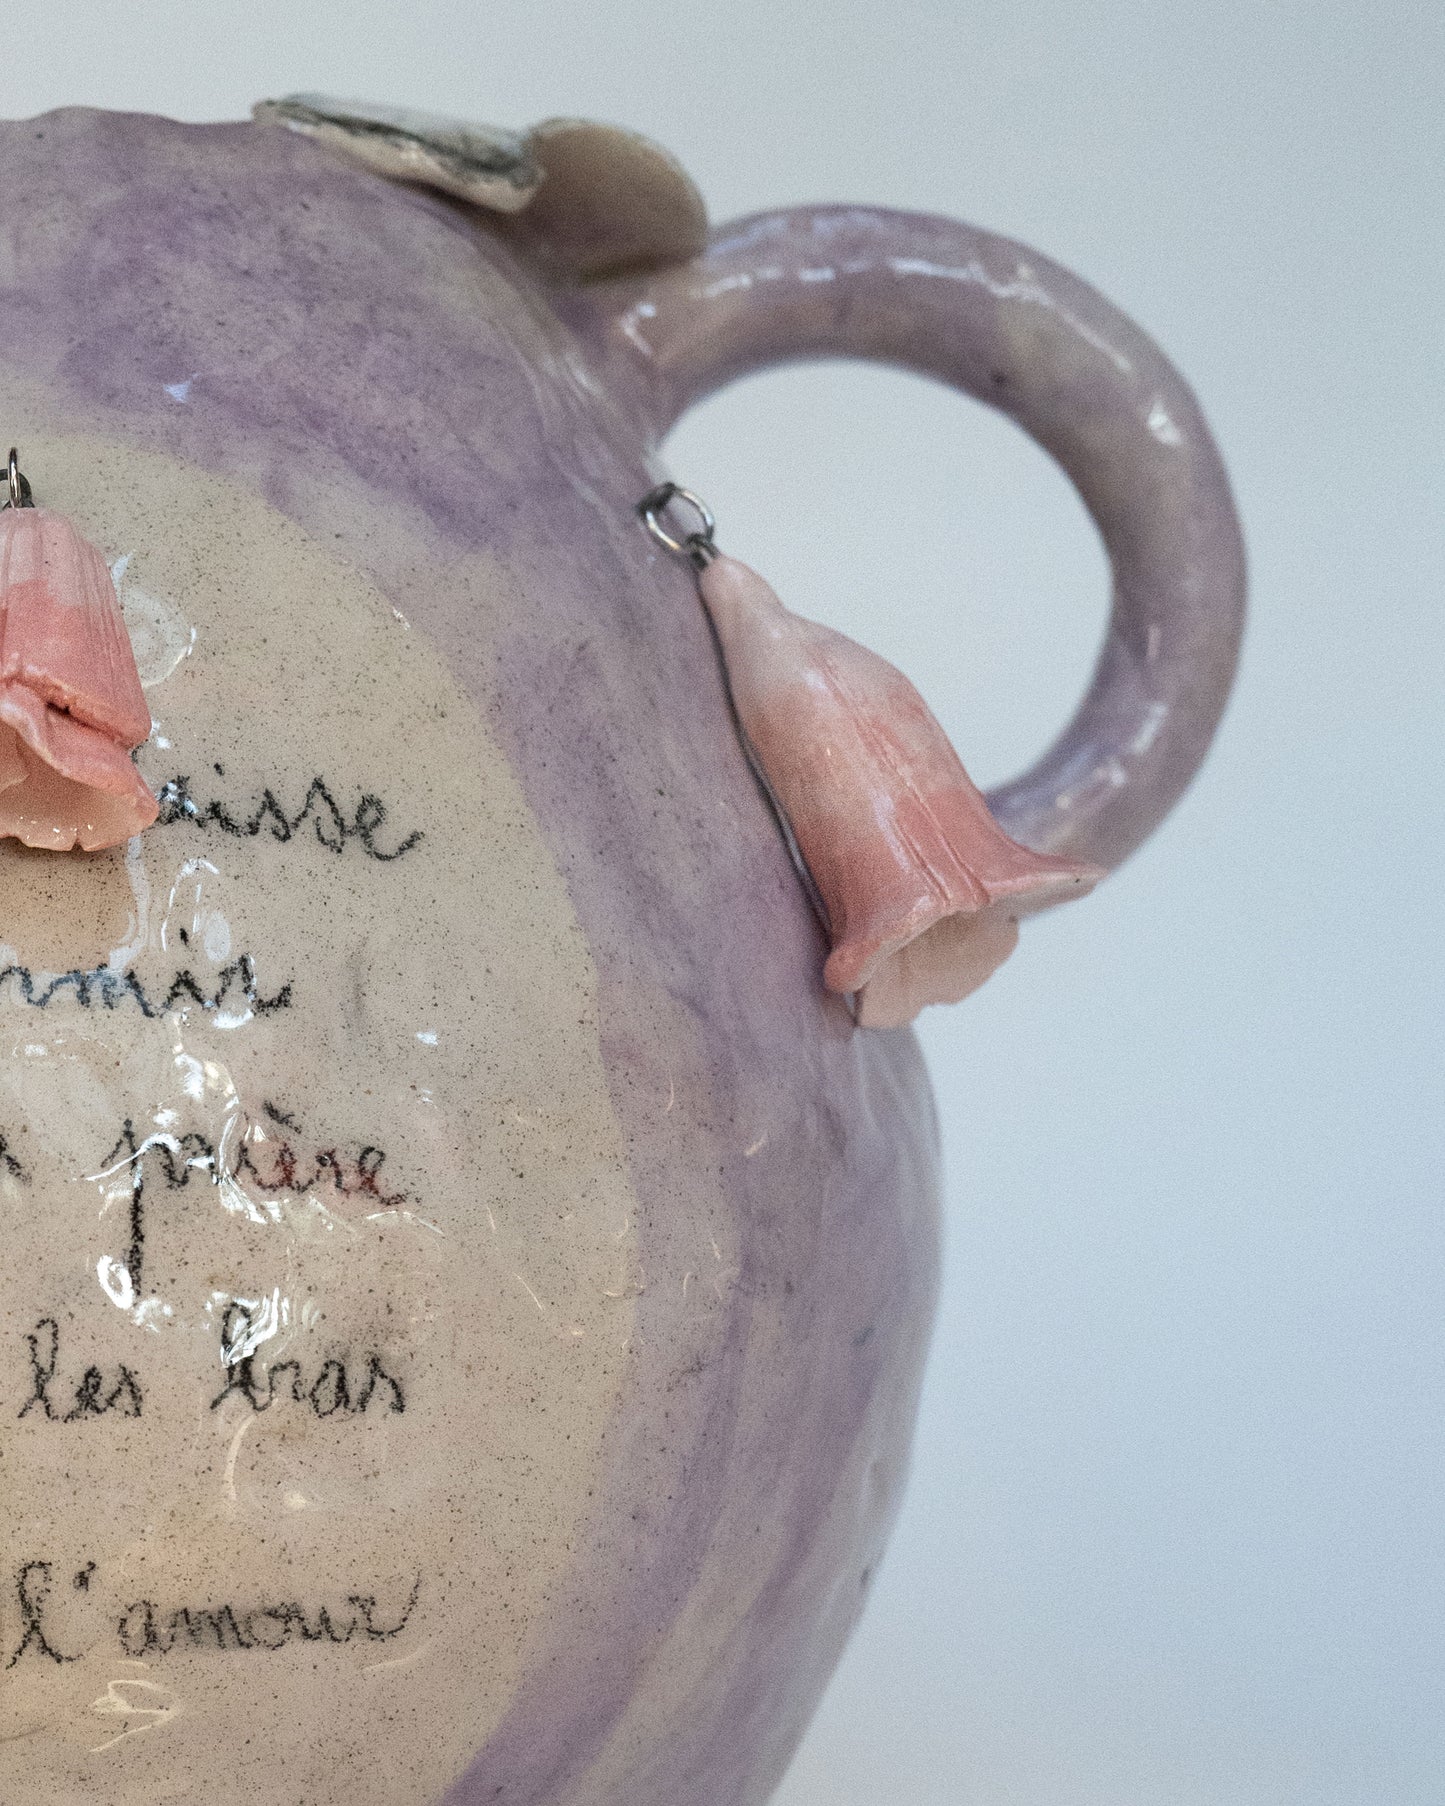 aisse
rmir
prière
les bras
l'amour